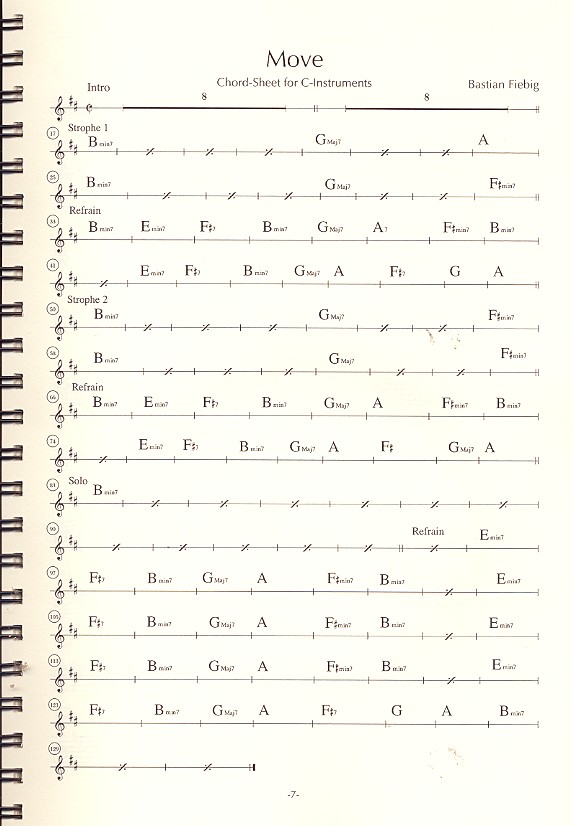 Move
Chord-Sheet for C-Instruments
Bastian Fiebig
Intro
8 8
Strophe 1
17 Bmin7 GMaj7 A
25 Bmin7 GMaj7 F♯min7
Refrain
33 Bmin7 Emin7 F♯7 Bmin7 GMaj7 A7 F♯min7 Bmin7
41 Emin7 F♯7 Bmin7 GMaj7 A F♯7 G A
Strophe 2
50 Bmin7 GMaj7 F♯min7
58 Bmin7 GMaj7 F♯min7
Refrain
66 Bmin7 Emin7 F♯7 Bmin7 GMaj7 A F♯min7 Bmin7
74 Emin7 F♯7 Bmin7 GMaj7 A F♯ GMaj7 A
Solo
83 Bmin7
90 Refrain Emin7
97 F♯7 Bmin7 GMaj7 A F♯min7 Bmin7 Emin7
105 F♯7 Bmin7 GMaj7 A F♯min7 Bmin7 Emin7
113 F♯7 Bmin7 GMaj7 A F♯min7 Bmin7 Emin7
121 F♯7 Bmin7 GMaj7 A F♯7 G A Bmin7
129
-7-